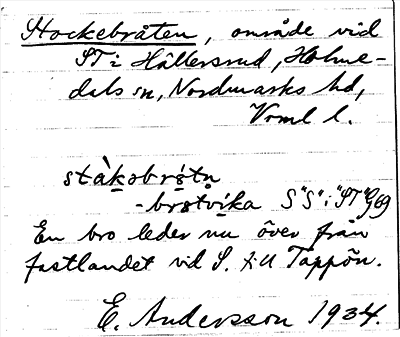 Stockebråten, område vid
"ST" i Hällersrud, Holme-
dals sn, Nordmarks hd,
Vrml l.
ståkobrǫ́tn
-brǫtvika S "S" i "ST" G69
En bro leder nu över från
fastlandet vid S. till Tappön.
E. Andersson 1934.